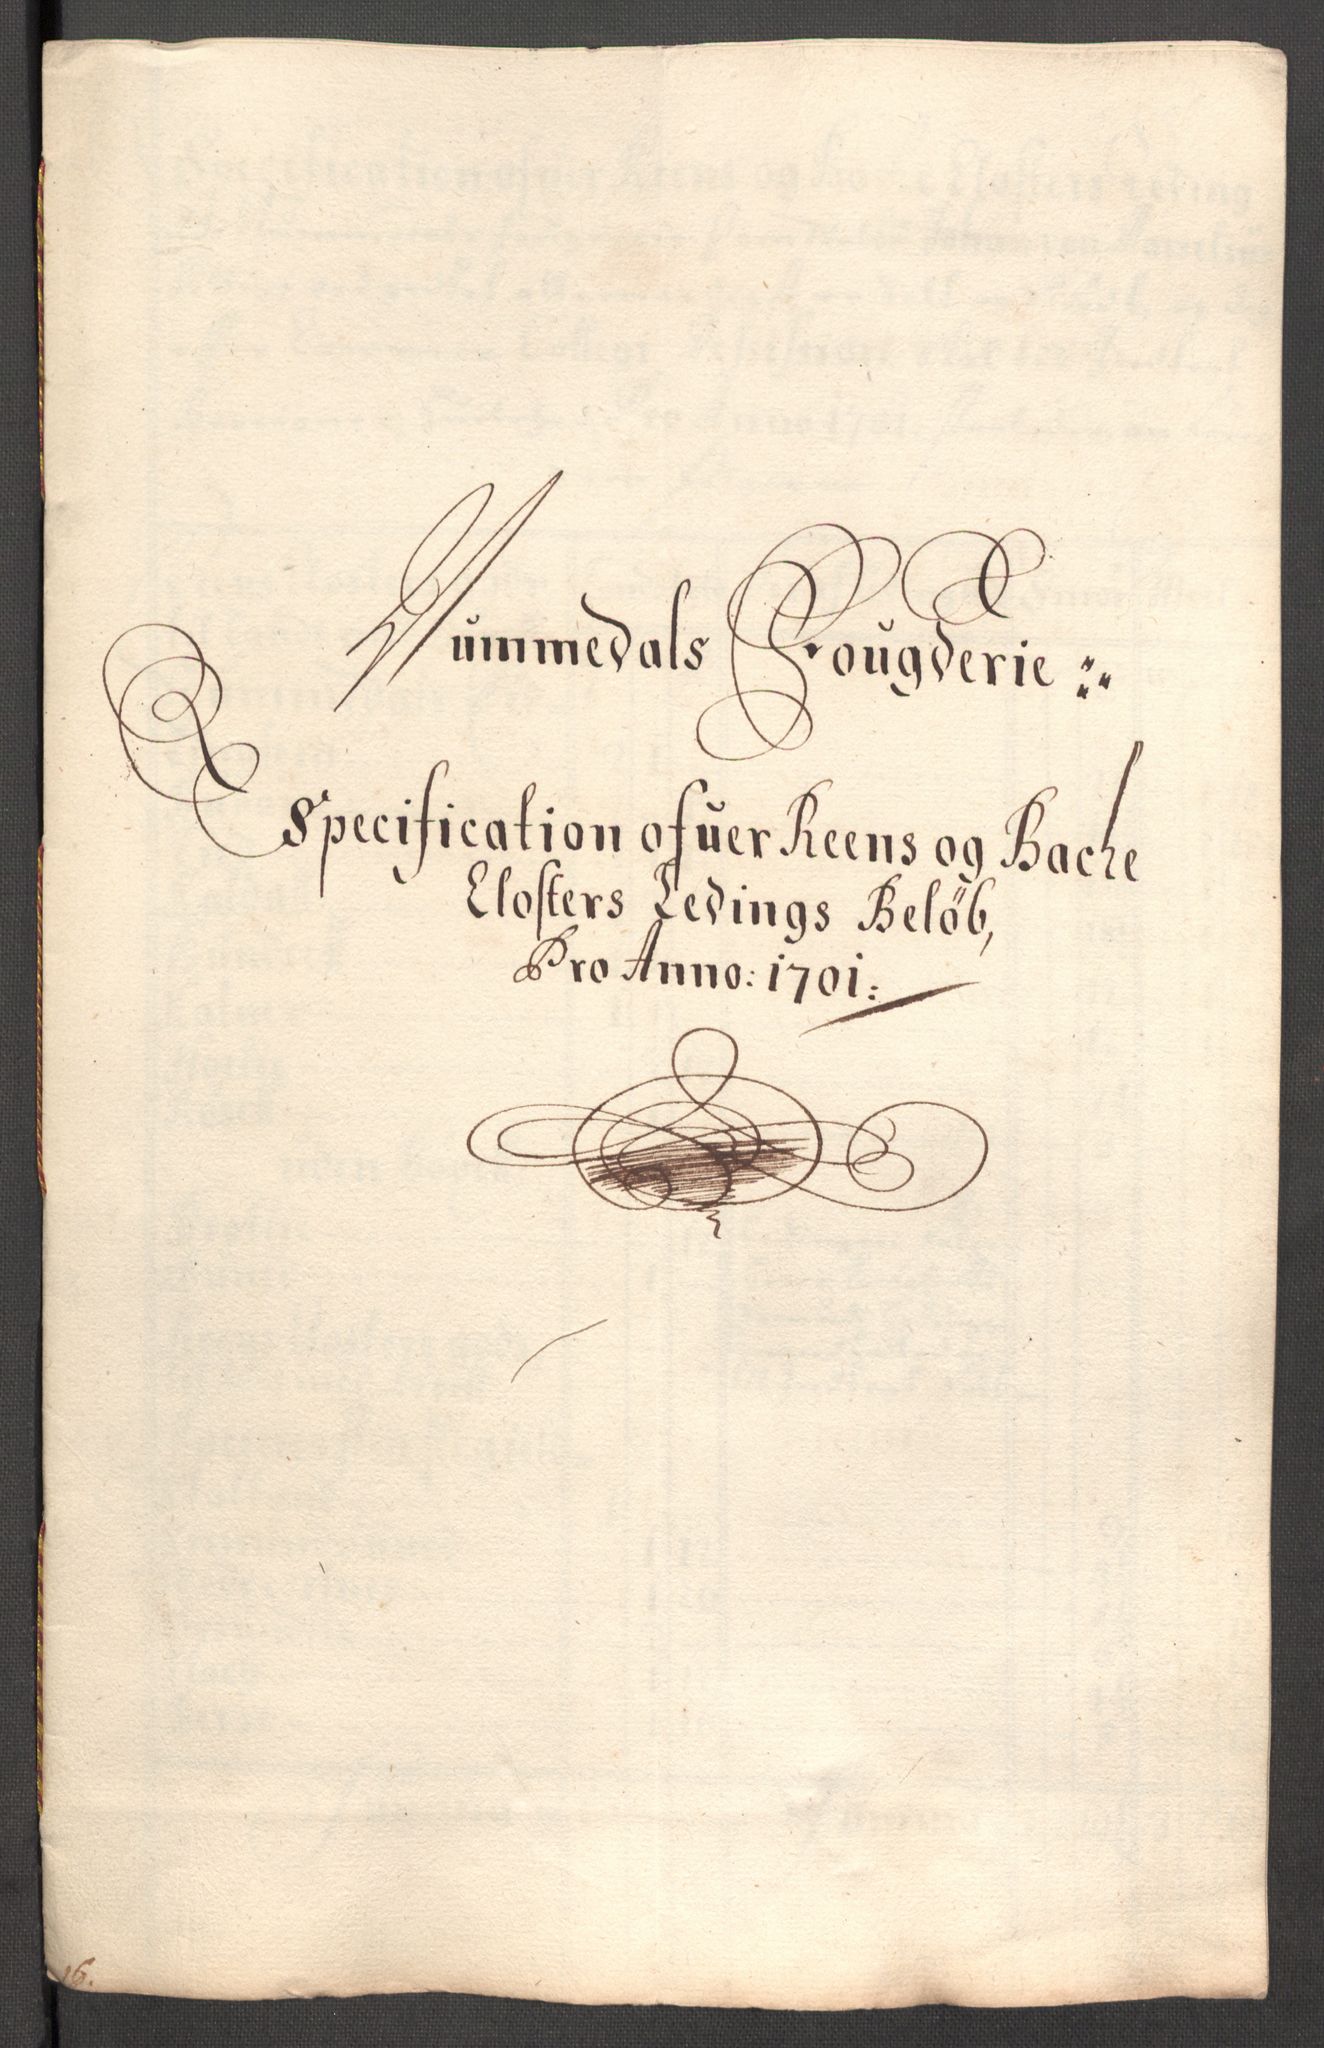 Nummedals Fougderie :
Specification ofuer Reens og Bache
Closters Leding̃s Belöb,
Pro Anno: 1701:
16.